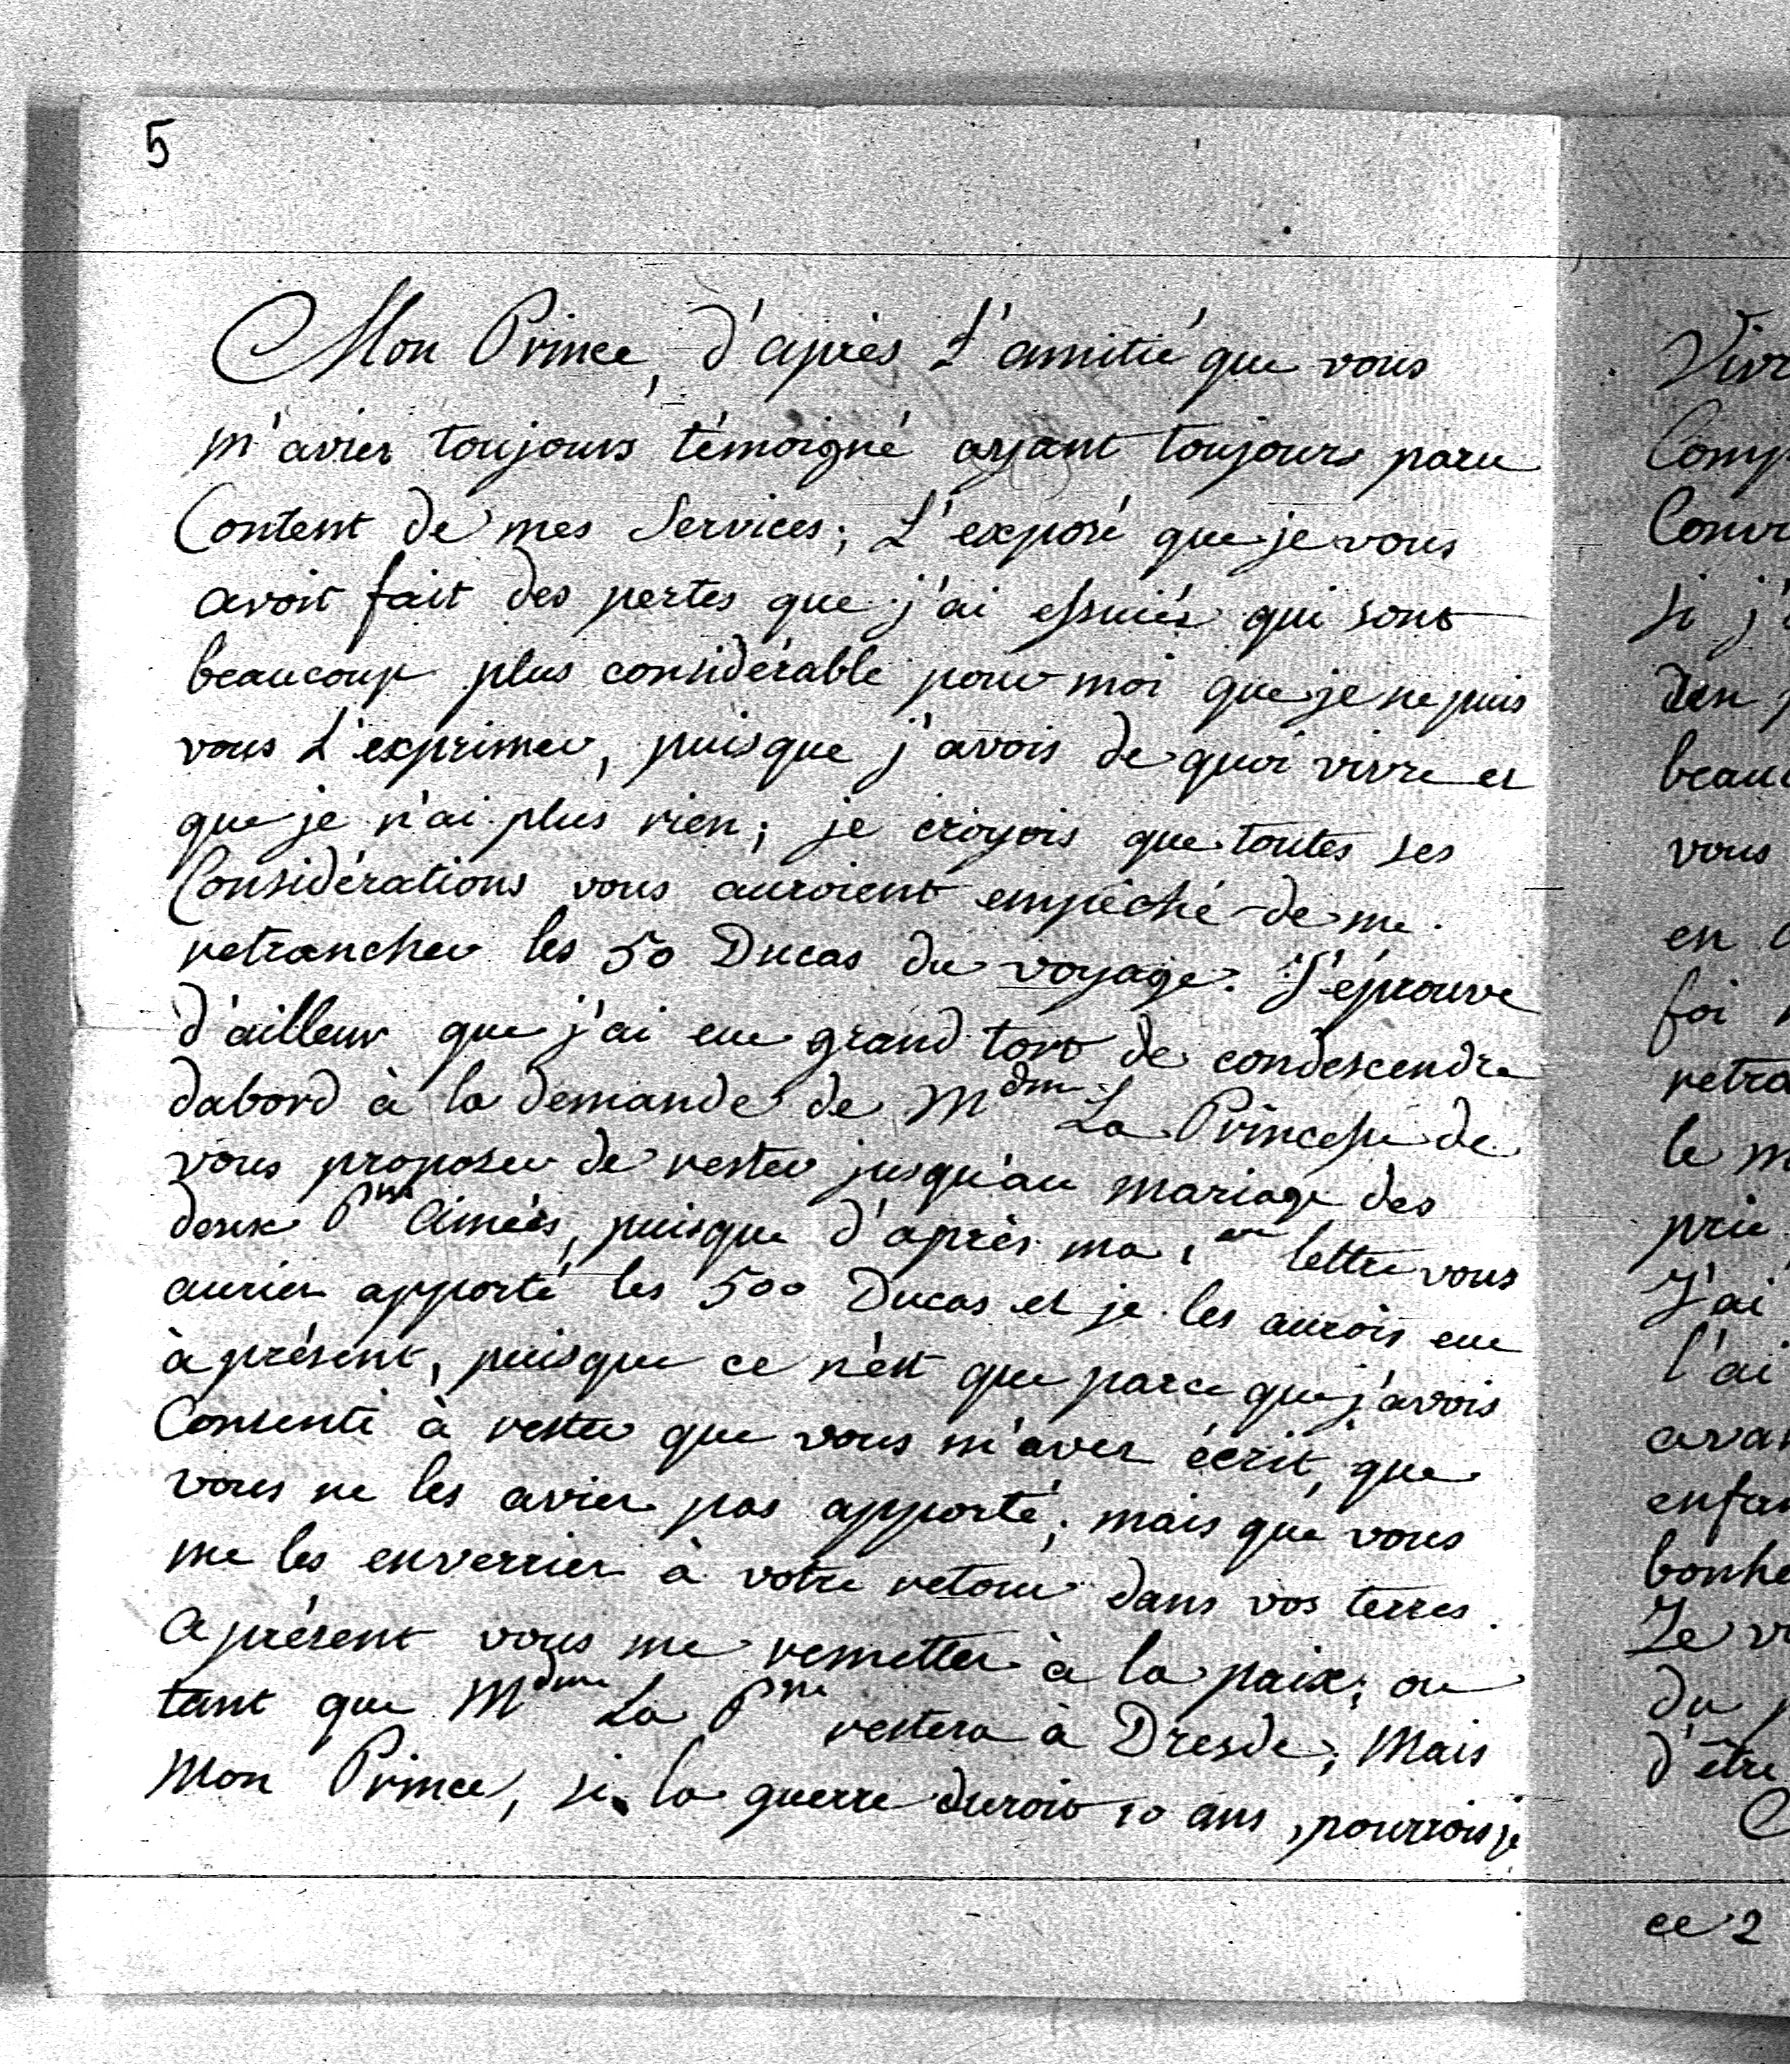 5
Mon Prince, d'après L'amitié que vous
m'aviez toujours témoigné ayant toujours paru
Content de mes Services; L'exposé que je vous
avoit fait des pertes que j'ai essuiés qui sont
beaucoup plus considérable pour moi que je ne puis
vous L'exprimer, puisque j'avois de quoi vivre et
que je n'ai plus rien; je croyois que toutes ses
Considérations vous auroient empéché de me
retrancher les 50 Ducas du voyage. J'éprouve
d'ailleur que j'ai eue grand tort de condescendre
dabord à la demande de Mdme La Princesse de
vous proposer de rester jusqu'au mariage des
deux Pses Ainées, puisque d'après ma 1ere lettre vous
auriez apporté les 500 Ducas et je les aurois eue
à présent, puisque ce n'est que parce que j'avois
Consenti à rester que vous m'avez écrit, que
vous ne les aviez pas apporté; mais que vous
me les enverriez à votre retour dans vos terres.
Aprésent vous me remettez à la paix; ou
tant que Mdme La Psse restera à Dresde; Mais
Mon Prince, si la guerre duroit 10 ans, pourrois je
Vivr
Comp
Conv
si j'
den
beau
vous
en
foi
retra
le m
prie
J'ai
l'ai
avan
enfan
bonhe
Je v
du p
d'être
ce 2